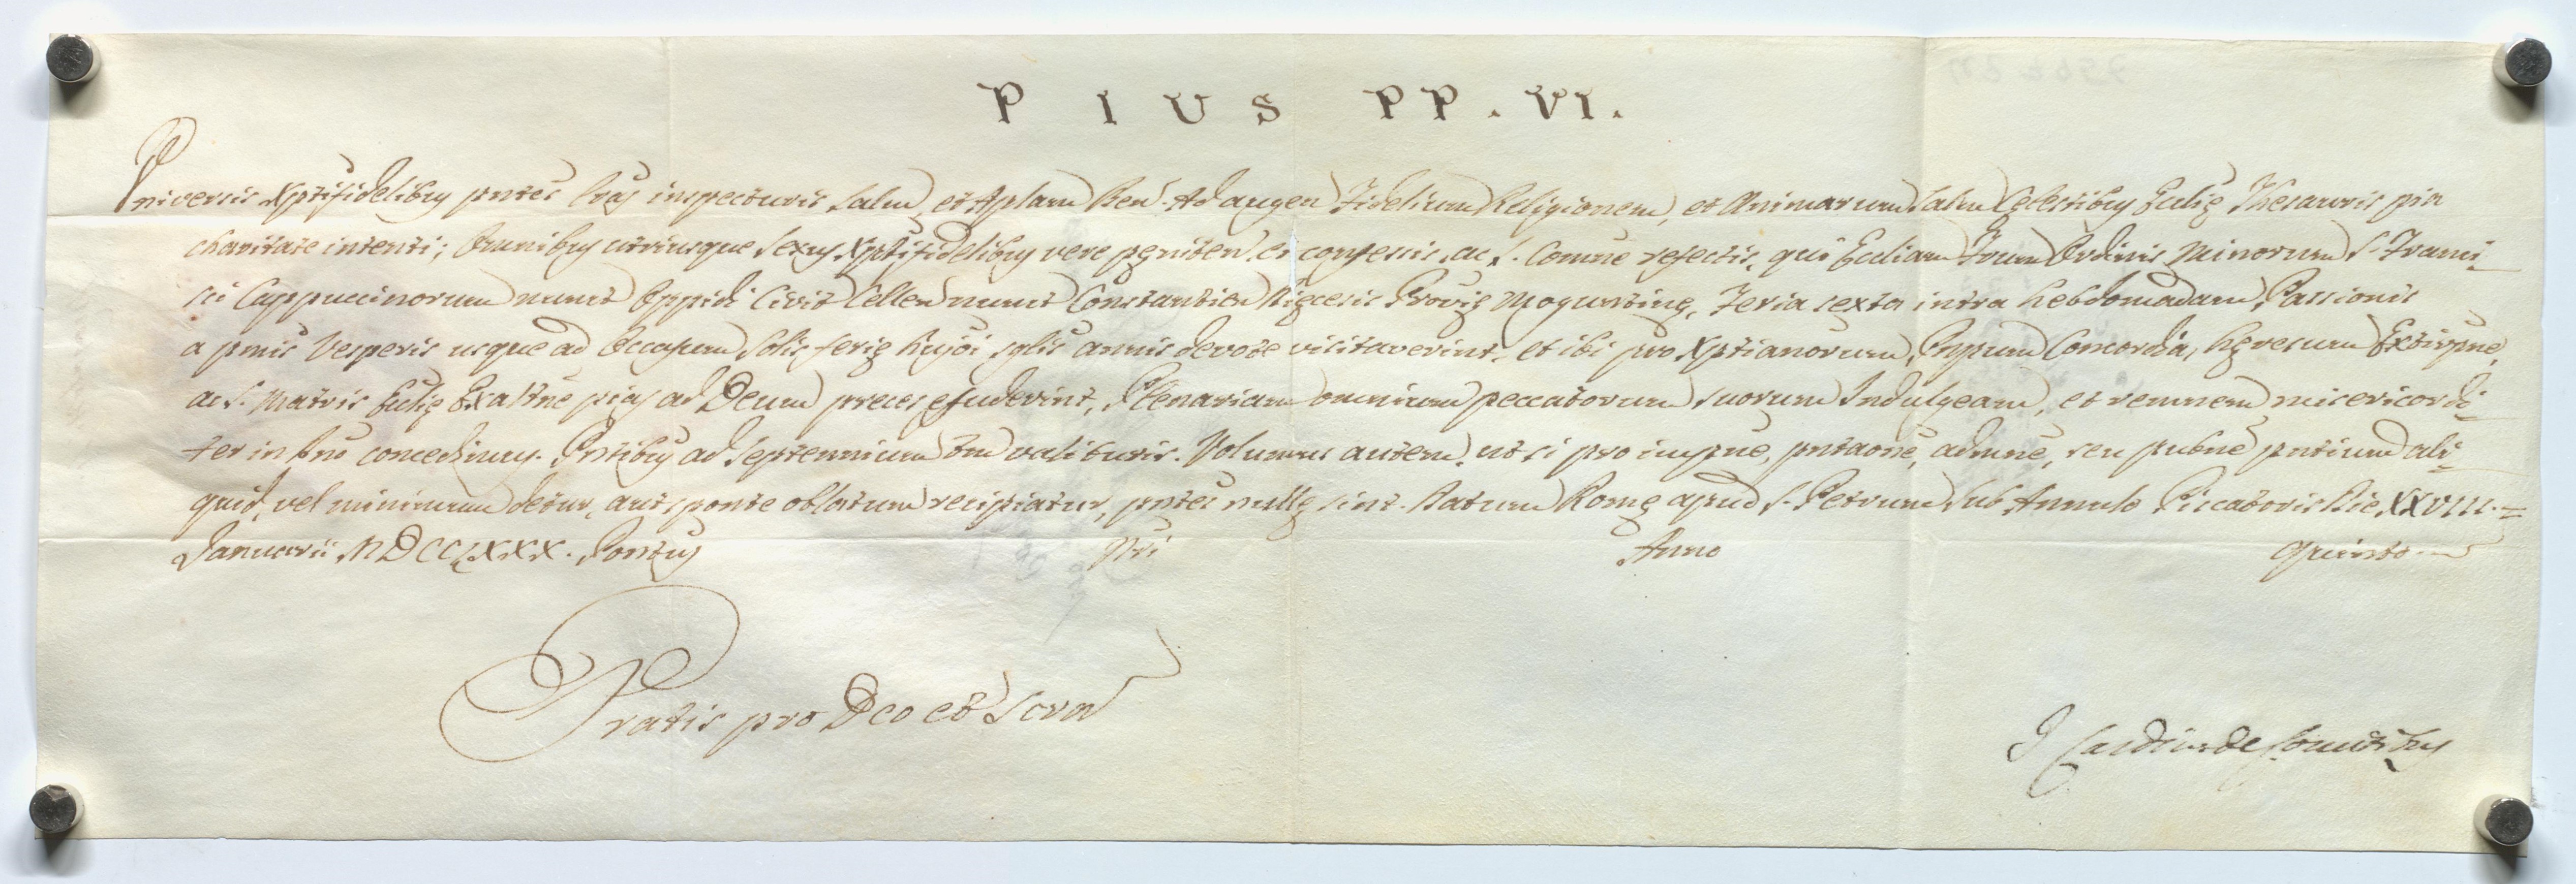 PIUS PP. VI.
Universis Xptifidelibus pntes lras inspecturis salm, et Aplam Ben. Ad augen Fidelium Religionem, et Animarum Salu Celestibus Ecclię Thesauris pia
charitate intenti; Omnibus utriusque Sexus Xptifidelibus vere pęniten, et confessis, ac S. Comne refectis, qui Eccliam Frum Ordinis Minorum S. Franci-
sci Cappuccinorum nunct Oppidi Civit Cellen nunct Constantien Dięcesis Provię Moguntinę, Feria sexta intra hebdomadam Passionis
a pmis Vesperis usque ad Occasum Solis ferię hujõi sglis annis devote visitaverint, et ibi pro Xptianorum Pnpum Concordia, hęresum Extirpne,
ac S. Matris Ecclię Exaltne pias ad Deum preces effuderint, Plenariam omnium peccatorum suorum Indulgeam, et remnem misericordi-
ter in Dno concedimus. Pntibus ad Septennium tm valituris. Volumus autem, ut si pro impne, pntaone, admne, seu pubne pntium ali-
quid, vel minimum detur, aut sponte oblatum recipiatur, pntes nullę sint. Datum Romę apud S. Petrum sub Annulo Piscatoris Die XXVIII.
Januarii MDCCLXXX. Pontus Nri Anno Quinto
Gratis pro Deo et Scra
I Cardlis de Comitibus